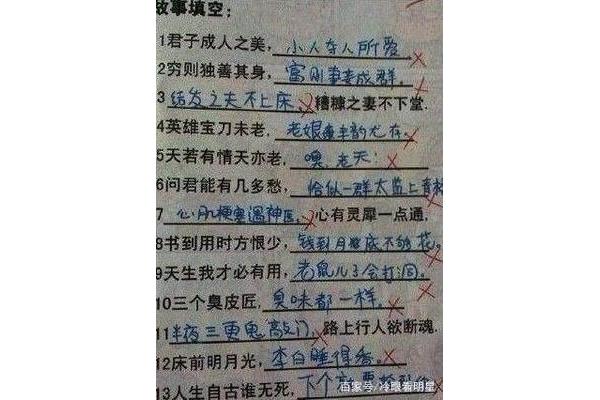 故事填空:
1君子成人之美, 小人夺人所爱
2穷则独善其身, 富则妻妾成群.
3 结发之夫不上床, 糟糠之妻不下堂.
4英雄宝刀未老, 老娘丰韵尤存.
5天若有情天亦老, 噢, 老天!
6问君能有几多愁, 恰似一群太监上青楼
7 心肌梗塞遇神医, 心有灵犀一点通.
8书到用时方恨少, 钱到月底不够花.
9天生我才必有用, 老鼠儿子会打洞.
10三个臭皮匠, 臭味都一样.
11半夜三更鬼敲门, 路上行人欲断魂.
12床前明月光, 李白睡得香.
13人生自古谁无死, 下个
百家号/冷眼看明星